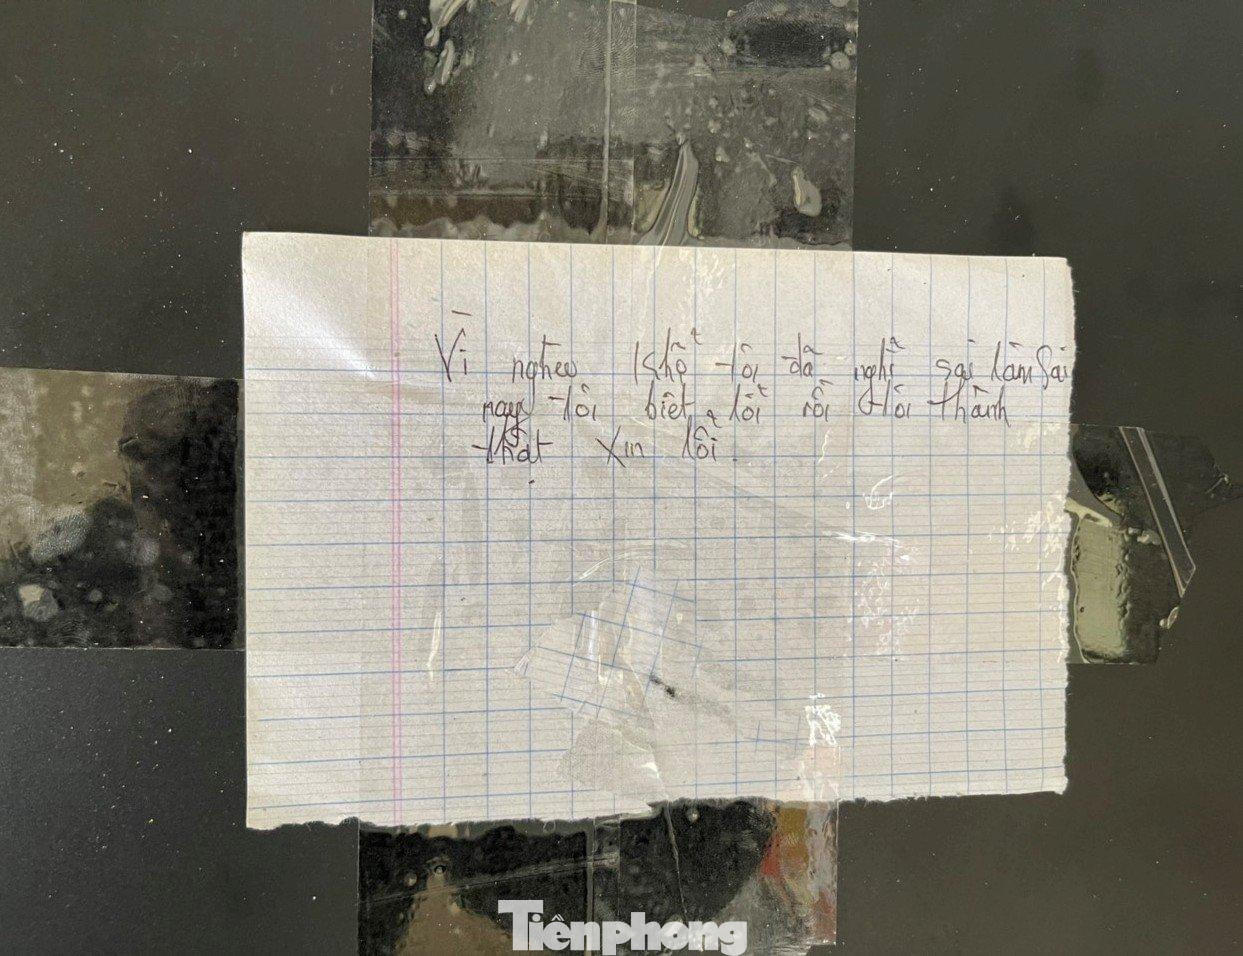 Vì nghèo khổ tôi đã nghĩ sai lầm Sai
nay tôi biết lỗi rồi tôi thành
thật xin lỗi.
Tiênphong